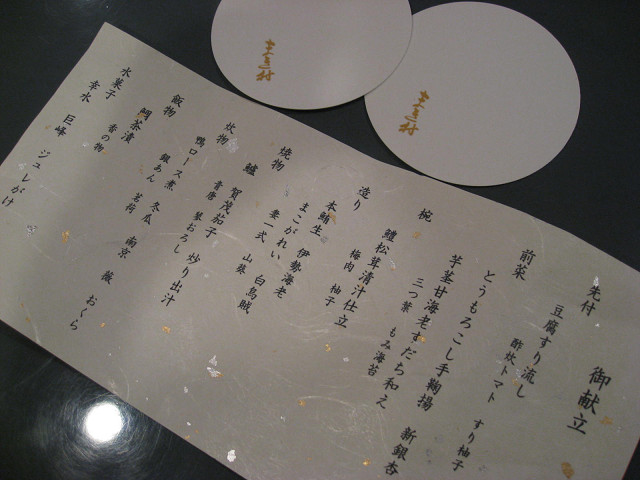 御献立
先付
豆腐すり流し
酢炊トマト すり柚子
前菜
とうもろこし手鞠揚 新銀杏
芋茎甘海老すだち和え
三つ葉 もみ海苔
椀
鱧松茸清汁仕立
梅肉 柚子
造り
本鮪生 伊勢海老
まこがれい 白烏賊
妻一式 山葵
焼物
鱸 賀茂茄子 炒り出汁
青唐 琴おろし
炊物
鴨ロース煮 冬瓜 南京 蕨 おくら
銀あん 茗荷
飯物
鯛茶漬
香の物
水菓子
幸水 巨峰 ジュレがけ
まき村
まき村